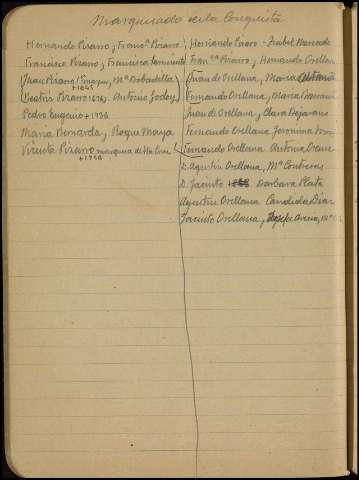 Marquesado de la Conquista
Hernando Pizarro, Franca Pizarro
Francisco Pizarro, Francisca Sarmiento
Juan Pizarro, Ma Bobadilla
+ 1645
Beatriz Pizarro 1676, Antonio Godoy
Pedro Eugenio + 1736
Maria Bernarda, Roque Maya
Vicenta Pizarro marquesa de
+ 1758
Hernando Pizarro - Isabel Mercado
Franca Pizarro, Hernando Orellana
Juan de Orellana, Maria
Fernando Orellana, Maria
Juan de Orellana, Clara Bejarano
Fernando Orellana Jeronima
Fernando Orellana Antonia
D. Agustin Orellana, Ma Contreras
D. Jacinto Barbara Plata
Agustin Orellana Candida Diaz
Jacinto Orellana,